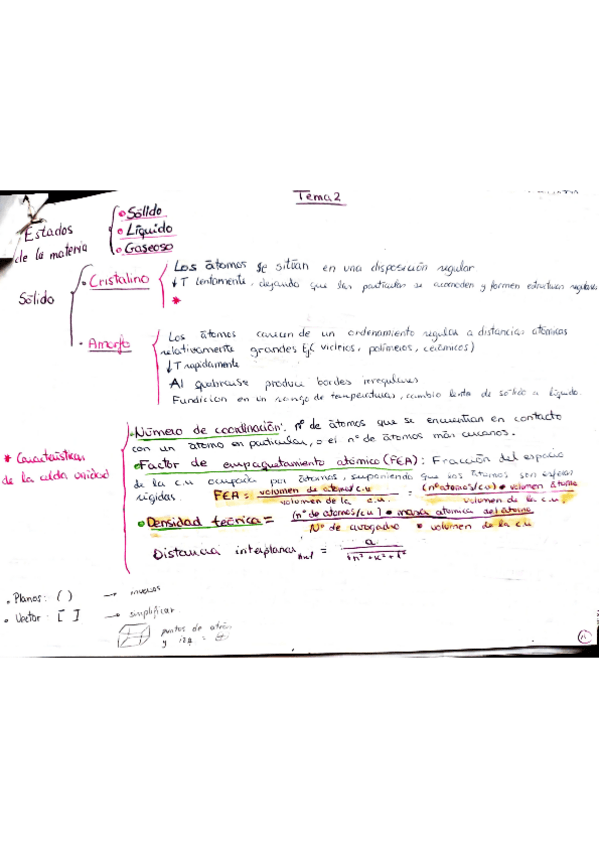 Tema 2
Estados
de la materia
• Sólido
• Líquido
• Gaseoso
Sólido
• Cristalino
Los átomos se sitúan en una disposición regular.
↓T lentamente, dejando que las partículas se acomoden y formen estructuras regulares
*
• Amorfo
Los átomos carecen de un ordenamiento regular a distancias atómicas
relativamente grandes Ej( vidrios, polímeros, cerámicos)
↓T rapidamente
Al quebrarse produce bordes irregulares
Fundicion en un rango de temperaturas, cambio lento de sólido a líquido.
* Características
de la celda unidad
• Número de coordinación: nº de átomos que se encuentran en contacto
con un átomo en particular, o el nº de átomos más cercanos.
• Factor de empaquetamiento atómico (FEA): Fracción del espacio
de la c.u ocupada por átomos, suponiendo que los átomos son esferas
rígidas. FEA = volumen de atomos/c.u / volumen de la c.u. = (nº atomos/c.u) • volumen átomo / volumen de la c.u.
• Densidad teórica = (nº de atomos/c.u) • masa atomica del átomo / Nº de avogadro • volumen de la c.u
Distancia interplanar hkl = a / √h²+k²+l²
• Planos: ( ) → inversos
• Vector: [ ] → simplificar
puntos de atrás
y izq =